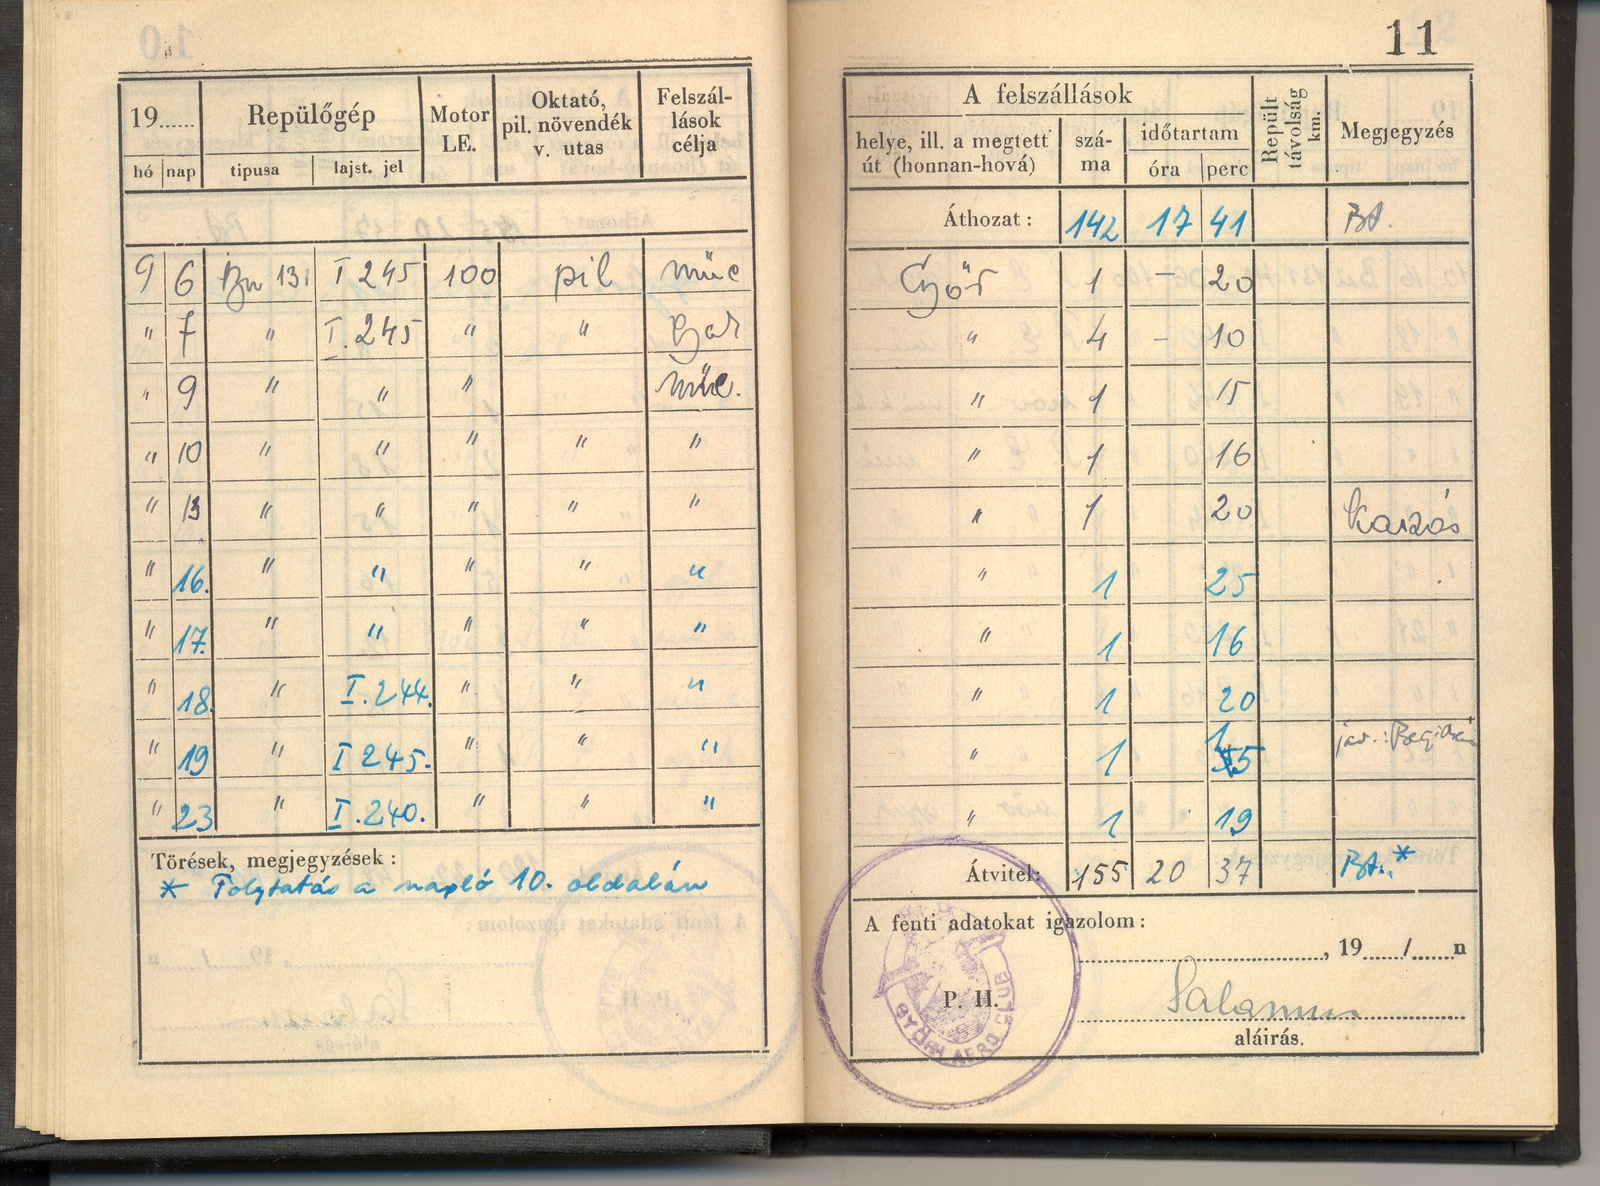 11
19......
Repülőgép
Motor LE.
Oktató, pil. növendék v. utas
Felszál-lások célja
hó nap tipusa lajst. jel
A felszállások
helye, ill. a megtett út (honnan-hová)
szá-ma
időtartam
óra perc
Repült távolság km.
Megjegyzés
Áthozat: 142 17 41
9 6 131 I 245 100 pil műc Győr 1 – 20
" 7 " I.245 " " " 4 – 10
" 9 " " " műc. " 1 15
" 10 " " " " " " 1 16
" 13 " " " " " " 1 20
" 16. " " " " " " 1 25
" 17. " " " " " " 1 16
" 18. " I.244. " " " " 1 20
" 19 " I 245. " " " " 1
" 23 " I.240. " " " " 1 19
Átvitel: 155 20 37
Törések, megjegyzések:
* Folytatás a napló 10. oldalán
A fenti adatokat igazolom:
, 19....../......n
P. H.
aláirás.